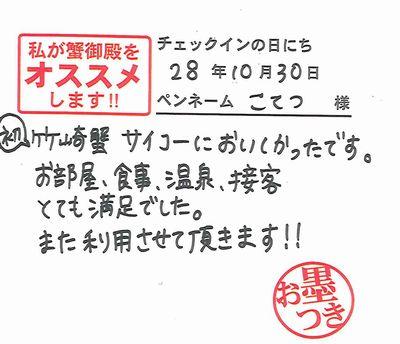 私が蟹御殿を
オススメ
します!!
チェックインの日にち
28 年 10 月 30 日
ペンネーム こてつ 様
初 竹崎蟹 サイコーにおいしかったです。
お部屋、食事、温泉、接客
とても満足でした。
また利用させて頂きます!!
お墨つき